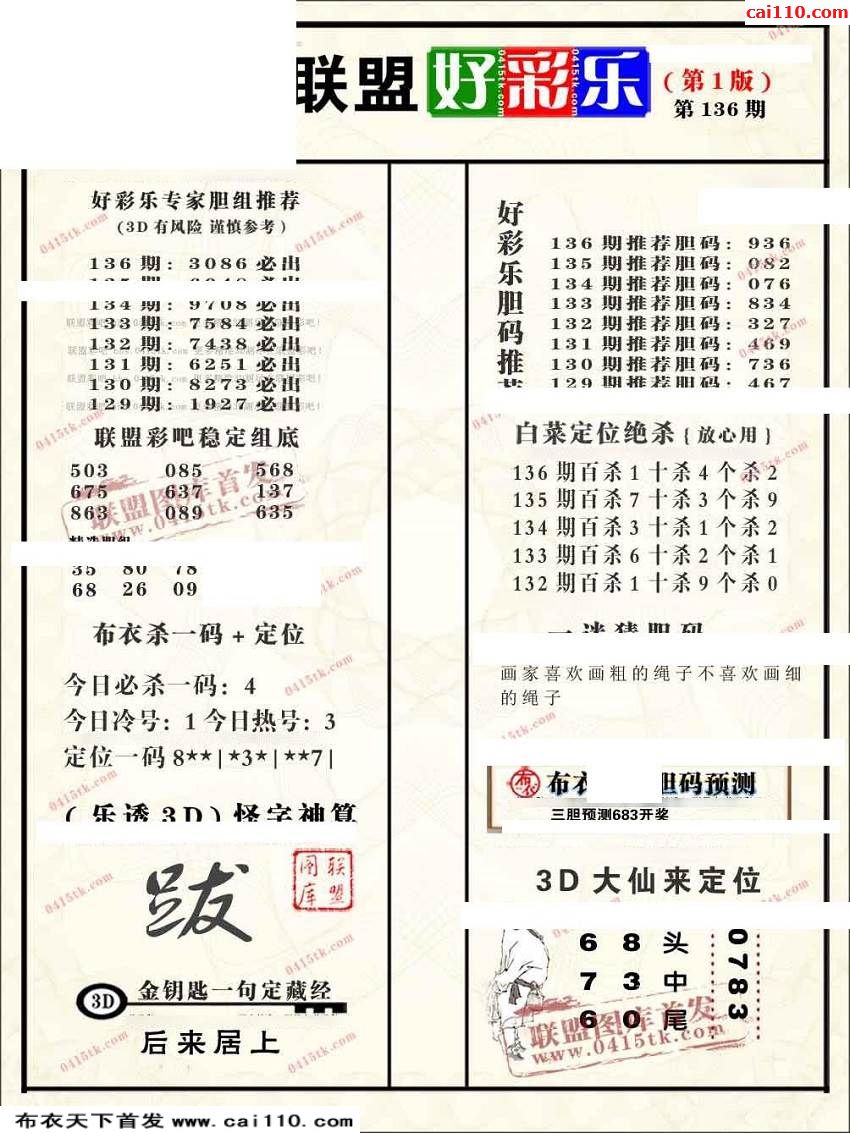 cai110.com
联盟好彩乐
(第1版)
第136期
好彩乐专家胆组推荐
(3D有风险 谨慎参考)
136期: 3086必出
134期: 9708必出
133期: 7584必出
132期: 7438必出
131期: 6251必出
130期: 8273必出
129期: 1927必出
联盟彩吧稳定组底
503 085 568
675 637 137
863 089 635
35 80 78
68 26 09
布衣杀一码+定位
今日必杀一码: 4
今日冷号: 1 今日热号: 3
定位一码8**|*3*|**7|
(乐透3D)怪字神算
跋
联盟图库
3D 金钥匙一句定藏经
后来居上
好彩乐胆码推荐
136期推荐胆码: 936
135期推荐胆码: 082
134期推荐胆码: 076
133期推荐胆码: 834
132期推荐胆码: 327
131期推荐胆码: 469
130期推荐胆码: 736
129期推荐胆码: 467
白菜定位绝杀{放心用}
136期百杀1十杀4个杀2
135期百杀7十杀3个杀9
134期百杀3十杀1个杀2
133期百杀6十杀2个杀1
132期百杀1十杀9个杀0
一谜猜胆码
画家喜欢画粗的绳子不喜欢画细
的绳子
布衣 胆码预测
三胆预测683开奖
3D大仙来定位
6 8 头
7 3 中
6 0 尾
0783
联盟图库首发
www.0415tk.com
布衣天下首发 www.cai110.com